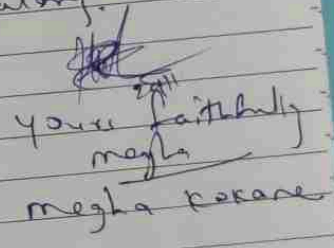 yours faithfully
megha
megha kokane